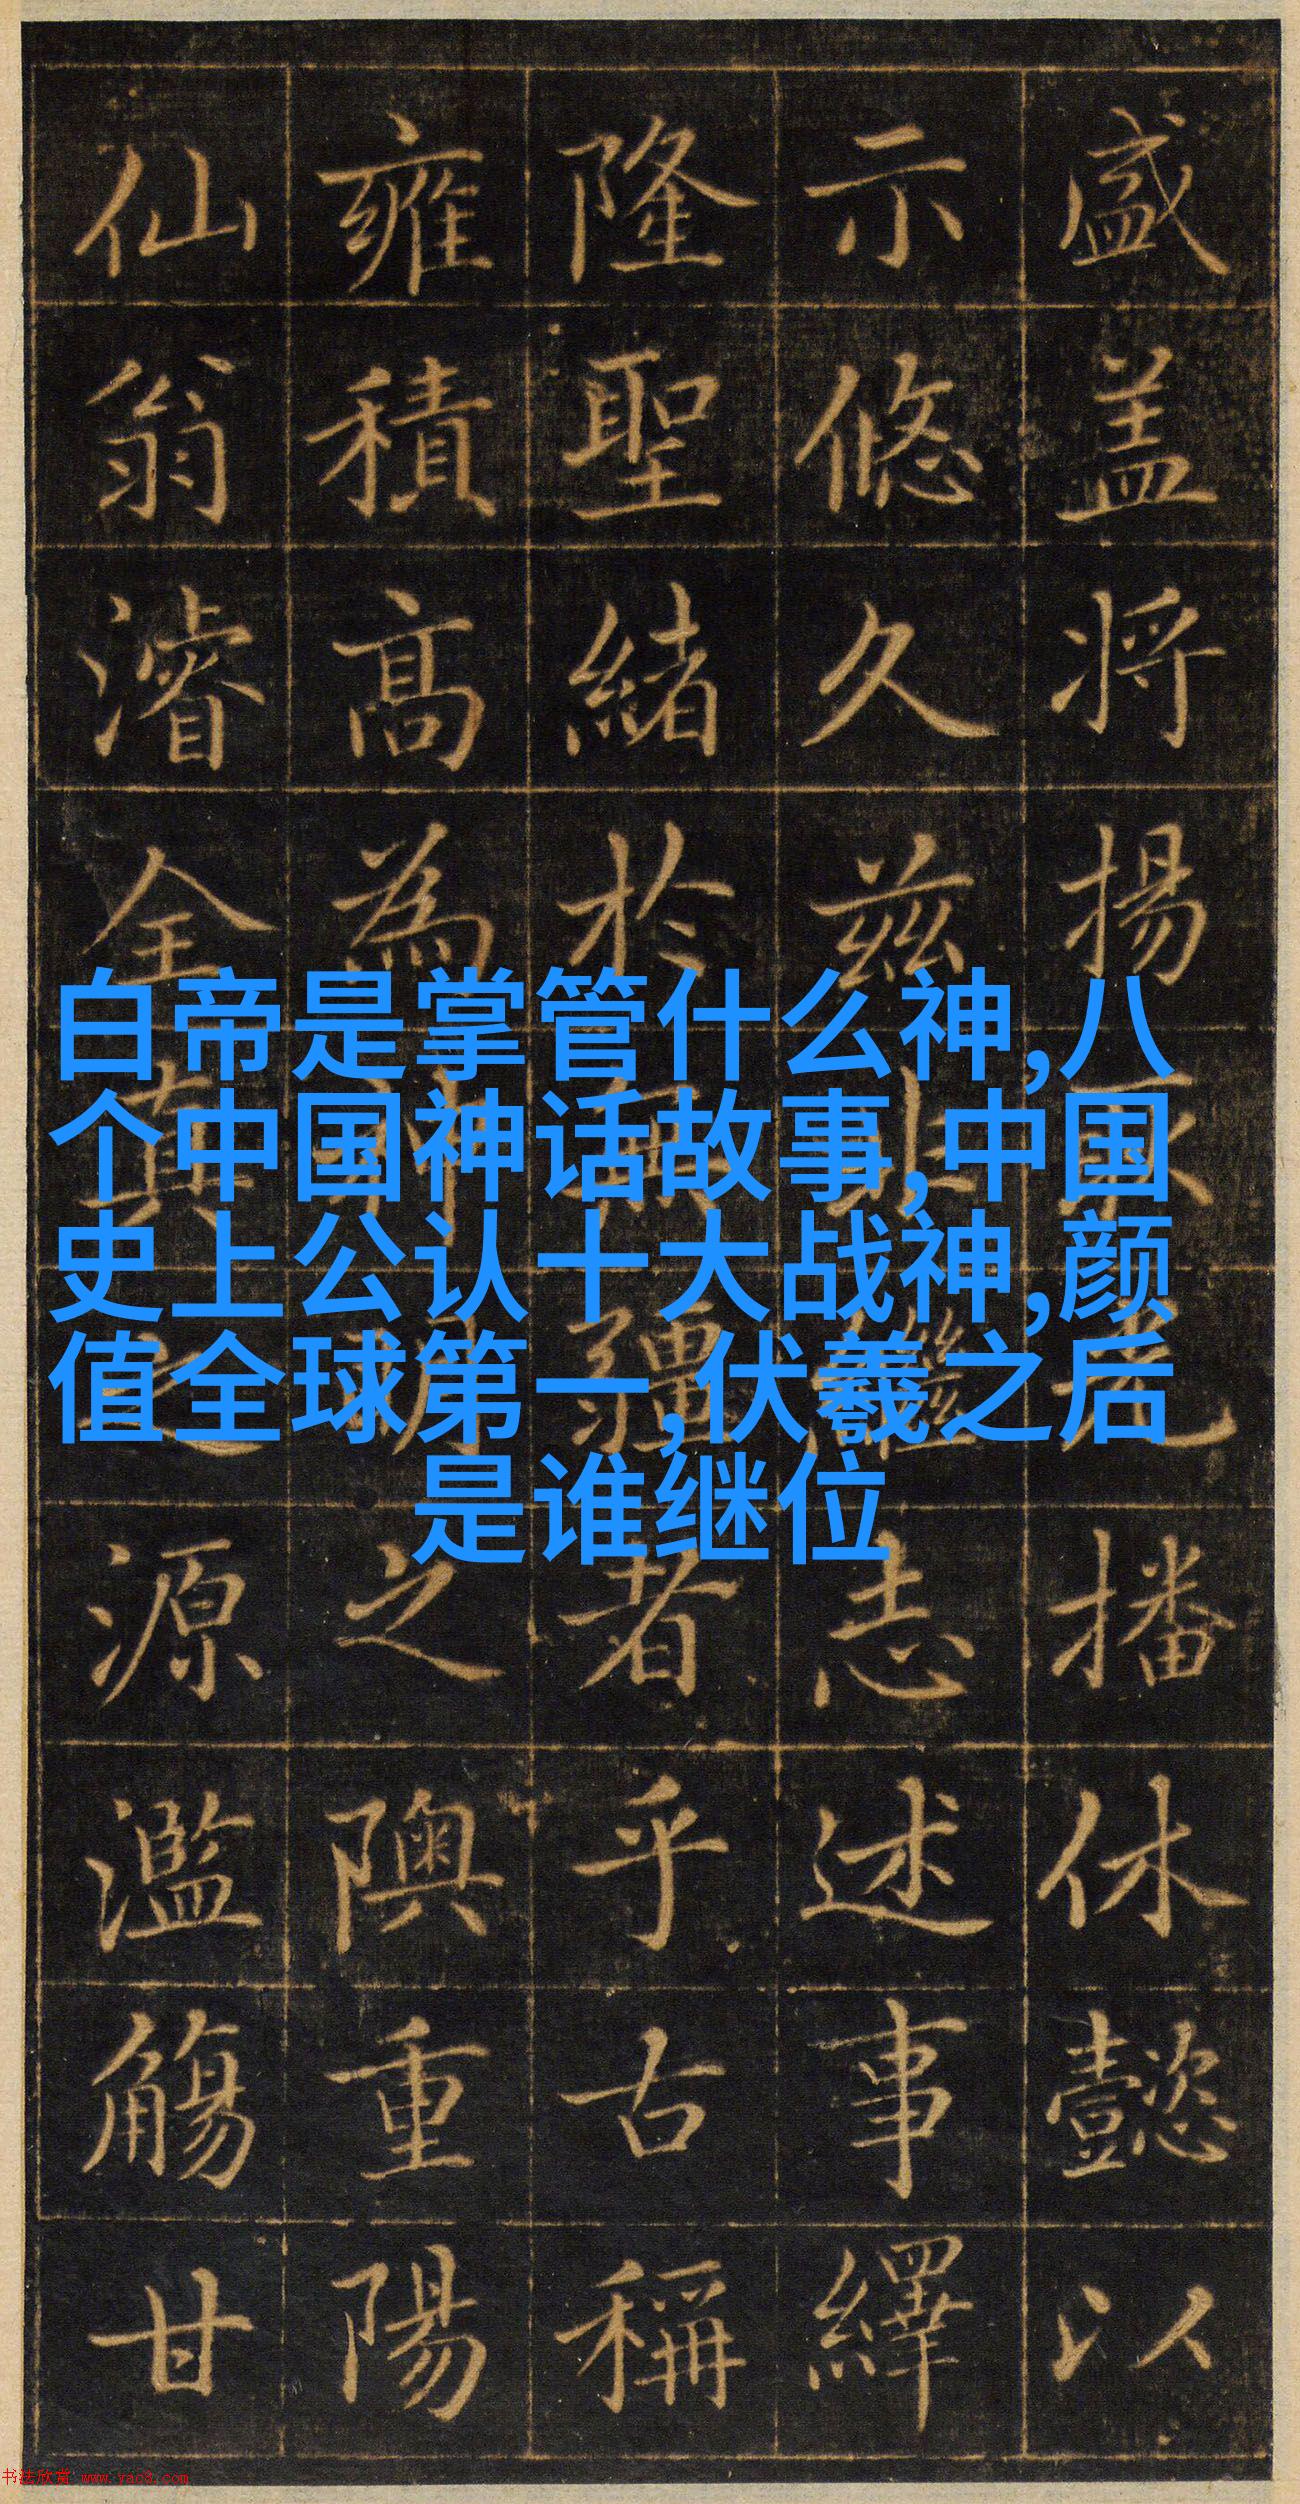 盛盖将揚播休懿以
示悠久兹非繼志述事繹
隆聖緒於無疆者乎古稱
雍積高為神明之隩重陽
仙翁濬全真之源濫觴甘
白帝是掌管什么神,八
个中国神话故事,中国
史上公认十大战神,颜
值全球第一,伏羲之后
是谁继位
书法欣赏 www.yac8.com